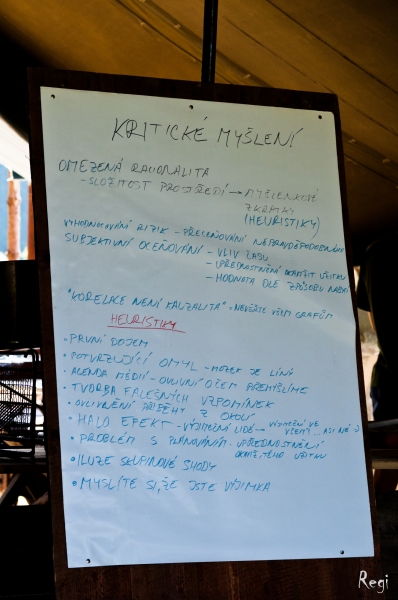 KRITICKÉ MYŠLENÍ
OMEZENÁ RACIONALITA
- SLOŽITOST PROSTŘEDÍ → MYŠLENKOVÉ
ZKRATKY
(HEURISTIKY)
VYHODNOCOVÁNÍ RIZIK - PŘECEŇOVÁNÍ NEPRAVDĚPODOBNÝCH
SUBJEKTIVNÍ OCEŇOVÁNÍ - VLIV ČASU
- UPŘEDNOSTNĚNÍ OKAMŽIT. UŽITKU
- HODNOTA DLE ZPŮSOBU NABYTÍ
"KORELACE NENÍ KAUZALITA" - NEVĚŘTE VŠEM GRAFŮM
HEURISTIKY
• PRVNÍ DOJEM
• POTVRZUJÍCÍ OMYL - MOZEK JE LÍNÝ
• AGENDA MÉDIÍ - OVLIVNÍ O ČEM PŘEMÝŠLÍME
• TVORBA FALEŠNÝCH VZPOMÍNEK
• OVLIVNĚNÍ PŘÍBĚHY Z OKOLÍ
• HALO EFEKT - VÝJIMEČNÍ LIDÉ → VÝJIMEČNÍ VE
VŠEM? ... ASI NE :)
• PROBLÉM S PLÁNOVÁNÍM - UPŘEDNOSTNĚNÍ
OKAMŽITÉHO UŽITKU
• ILUZE SKUPINOVÉ SHODY
• MYSLÍTE SI, ŽE JSTE VÝJIMKA
Regi